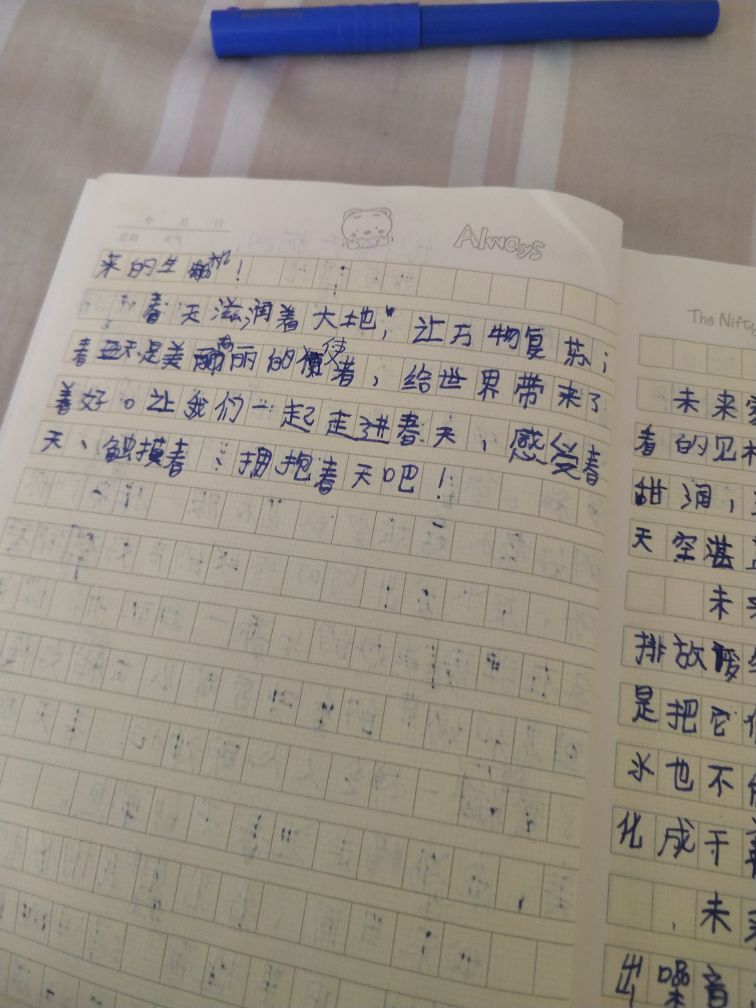 年 月 日
星期 天气
Always
来的生机！
春天滋润着大地，让万物复苏；
春天是美丽的使者，给世界带来了
美好。让我们一起走进春天、感受春
天、触摸春、拥抱春天吧！
The Nifty
未来
着的见
甜润，
天空湛蓝
未来
排放
是把它
水也不
化成干
，未来
出噪音